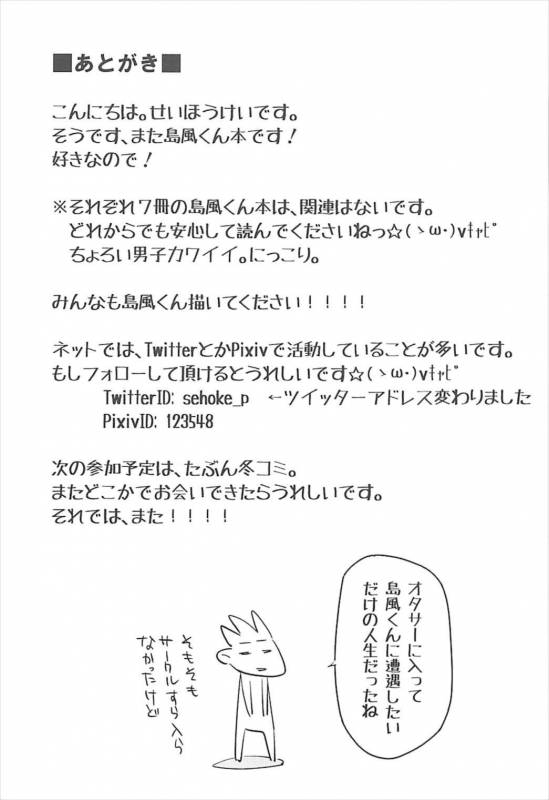 ■あとがき■
こんにちは。せいほうけいです。
そうです、また島風くん本です！
好きなので！
※それぞれ7冊の島風くん本は、関連はないです。
どれからでも安心して読んでくださいねっ☆(ゝω･)vｷｬﾋﾟ
ちょろい男子カワイイ。にっこり。
みんなも島風くん描いてください！！！！
ネットでは、TwitterとかPixivで活動していることが多いです。
もしフォローして頂けるとうれしいです☆(ゝω･)vｷｬﾋﾟ
TwitterID: sehoke_p ←ツイッターアドレス変わりました
PixivID: 123548
次の参加予定は、たぶん冬コミ。
またどこかでお会いできたらうれしいです。
それでは、また！！！！
オタサーに入って
島風くんに遭遇したい
だけの人生だったね
そもそも
サークルすら入ら
なかったけど